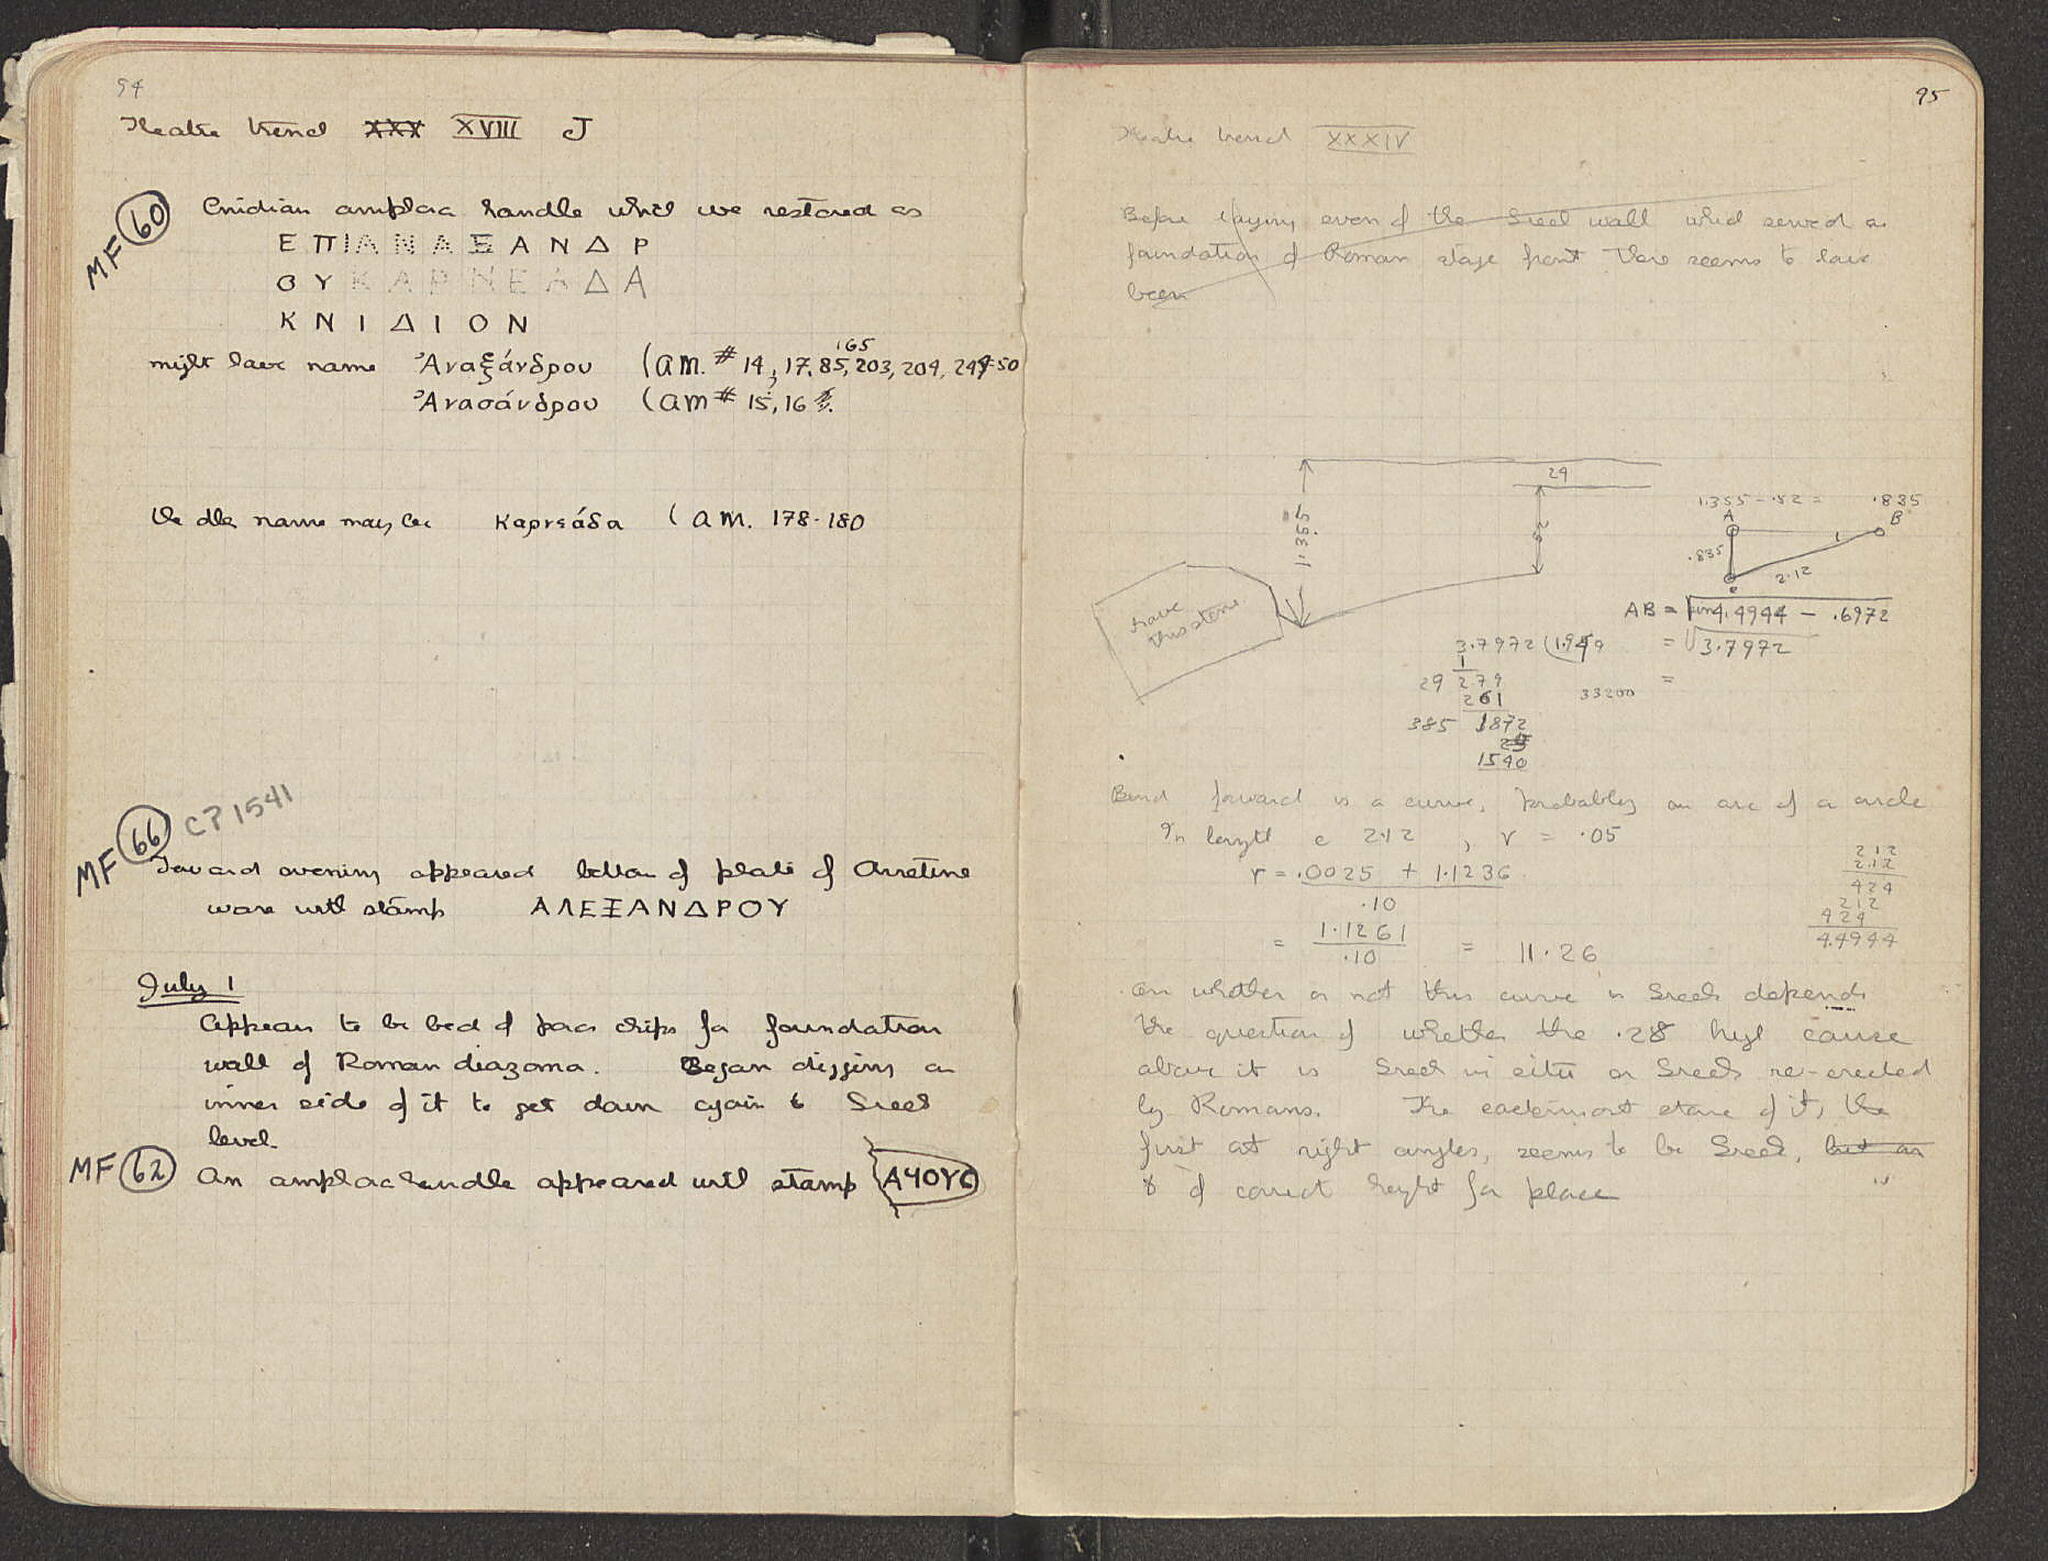 94
Theatre trench XXX XVIII J
MF 60 Cnidian amphora handle which we restored as
Ε Π Ι Α Ν Α Ξ Α Ν Δ Ρ
Ο Υ Κ Α Ρ Ν Ε Α Δ Α
Κ Ν Ι Δ Ι Ο Ν
might have name Ἀναξάνδρου (am. # 14, 17, 85, 165, 203, 204, 249-50
Ἀνασάνδρου (am # 15, 16
the other name may be Καρνεάδα (am. 178-180
MF 66 CP 1541
Toward evening appeared bottom of plate of Arretine
ware with stamp ΑΛΕΞΑΝΔΡΟΥ
July 1
Appears to be bed of poros chips for foundation
wall of Roman diazoma. Began digging on
inner side of it to get down again to Greek
level.
MF 62 An amphora handle appeared with stamp
95
Theatre trench XXXIV
Before laying even of the Greek wall which served as
foundation of Roman stage front there seems to have
been
29
1.355
have this stone
1.355 - .52 = .835
A B
.835
2.12
AB = √4.4944 - .6972
3.7972 (1.949 = √3.7972
1
29 279 =
261 33200
385 1872
1540
Bend forward is a curve, probably an arc of a circle
In length c 2.12, r = .05
r = .0025 + 1.1236
.10
= 1.1261 = 11.26
.10
212
2.12
424
212
424
4.4944
on whether or not this curve is Greek depends
the question of whether the .28 high course
above it is Greek in situ or Greek re-erected
by Romans. The easternmost stone of it, the
first at right angles, seems to be Greek, but an
& of correct height for place